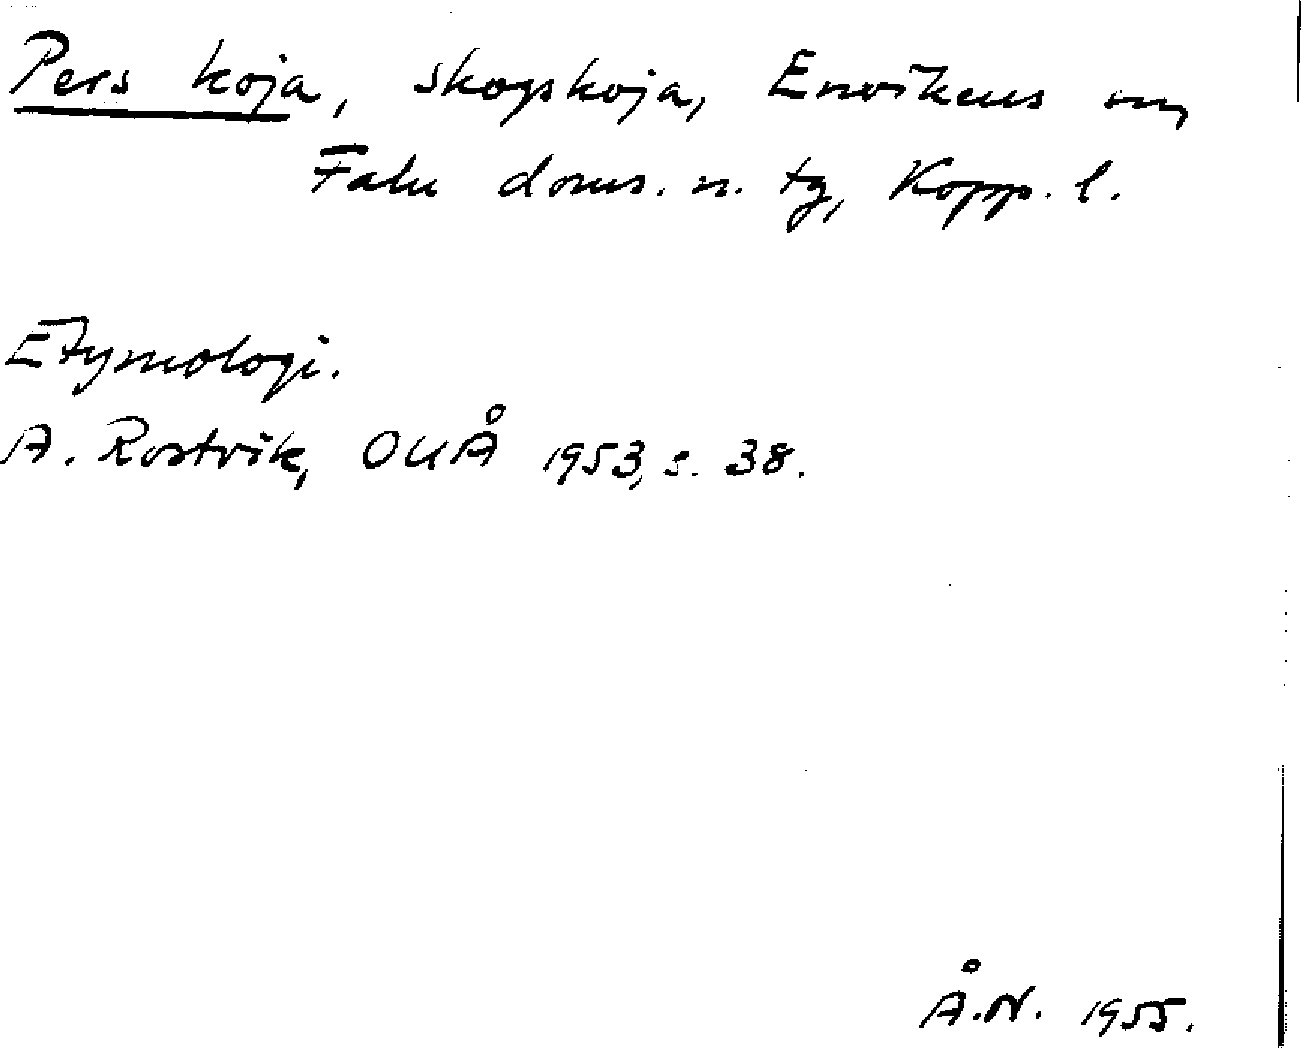 Pers koja, skogskoja, Envikens sn,
Falu doms. n. tg, Kopp. l.
Etymologi.
A. Rostvik, OUÅ 1953, s. 38.
Å.N. 1955.